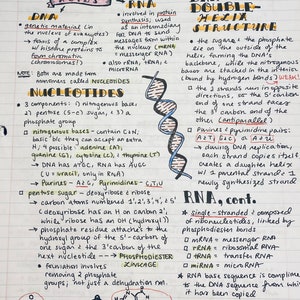 DNA
genetic material (in the nucleus of eukaryotes)
forms of a complex w/ histone proteins to form chromatin (chromosomes!)
NOTE Both are made from monomers called NUCLEOTIDES
RNA
involved in protein synthesis, used as an intermediary for DNA to send messages from within the nucleus
(mRNA) (messenger RNA)
also rRNA, tRNA,
NUCLEOTIDES
3 components: 1) nitrogenous base,
2) pentose (5-C) sugar, 3) a
phosphate group
nitrogenous bases - contain C & N,
basic b/c they can accept an extra
H, 4 possible: adenine (A),
guanine (G), cytosine (C), thymine (T)
DNA has ATGC, RNA has AUGC
(U = uracil, only in RNA)
→ Purines = A & G, Pyrimidines = C, T, U
pentose sugar = deoxyribose or ribose
carbon atoms numbered 1', 2', 3', 4', 5'
(deoxyribose has an H on carbon 2',
while ribose has an OH (hydroxyl))
phosphate residue attaches to the
hydroxyl group of the 5'-carbon of
one sugar & the 3' carbon of the
next nucleotide → PHOSPHODIESTER LINKAGE
formation involves
removing 2 phosphate
groups, not just a dehydration rxn.
DOUBLE-
HELIX
STRUCTURE
sugar & the phosphate
lie on the outside of the
helix, forming the DNA's
backbone, while the nitrogenous
bases are stacked in the interior
bound by hydrogen bonds
the 2 strands run in opposite
directions, so the 5' carbon
end of one strand faces
the 3' carbon end of the
other (antiparallel)
Purines & Pyrimidines pair:
A & T, G & C
during DNA replication,
each strand copies itself,
creates a daughter helix
w/ 1 parental strand & 1
newly synthesized strand
RNA, cont.
single-stranded & composed
of ribonucleotides, linked by
phosphodiester bonds
mRNA = messenger RNA
rRNA = ribosomal RNA
tRNA = transfer RNA
miRNA = micro RNA
RNA base sequence is complimentary
to the DNA sequence from which
it has been copied